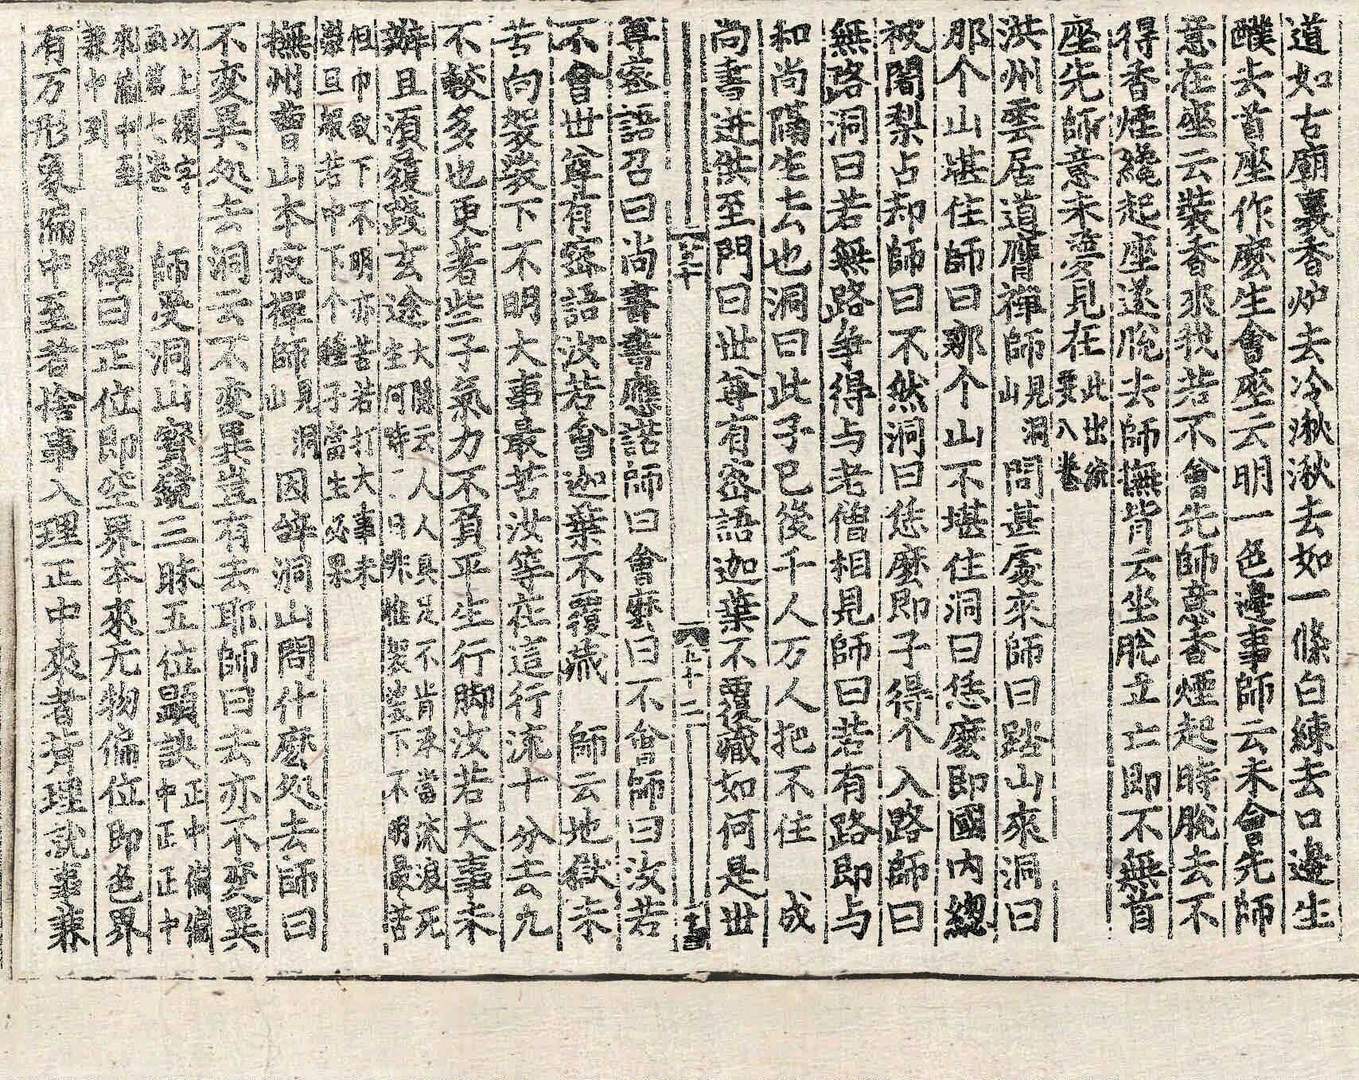 道如古廟裏香炉去冷湫湫去如一條白練去口邊生
醭去首座作麽生會座云明一色邊事師云未會先師
意在坐云裝香來我若不會先師意香煙起時脫去不
得香煙纔起座遂脫去師撫背云坐脫立亡即不無首
座先師意未夢見在
此出
要八卷
洪州雲居道膺禪師見洞山問甚處來師曰踏山來洞曰
那个山堪住師曰那个山不堪住洞曰恁麽即國內緫
被闍梨占却師曰不然洞曰恁麽即子得个入路師曰
無路洞曰若無路爭得与老僧相見師曰若有路即与
和尚隔生去也洞曰此子已後千人万人把不住 成
尚書送供至門曰世尊有密語迦葉不覆藏如何是世
尊密語召曰尚書書應諾師曰會麽曰不會師曰汝若
不會世尊有密語汝若會迦葉不覆藏 師云地獄未
苦向袈裟下不明大事最苦汝等在這行流十分去九
不較多也更著些子氣力不負平生行脚汝若大事未
辦且須履踐玄途
大隱云人人具足不肯承當流浪死
生何時一日非唯袈裟下不明最苦
但巾㡌下不明亦苦若打大事未
辦且報若中下个種子當生必果
撫州曹山本寂禪師見洞山因辝洞山問什麽処去師曰
不变異処去洞云不变異豈有去耶師曰去亦不变異
以上頌字
函第七卷
來偏中至
兼中到
師受洞山寶鏡三昧五位顯訣
正中偏偏
中正正中
釋曰正位即空界本來无物偏位即色界
有万形象偏中至者捨事入理正中來者背理就事兼